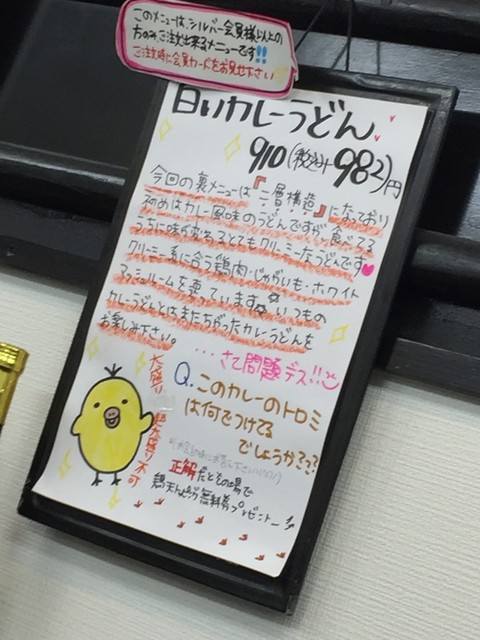 このメニューは、シルバー会員様以上の
方のみ、ご注文出来るメニューです!!
ご注文時に会員カードをお見せ下さい
白いカレーうどん
910(税込み982)円
今回の裏メニューは『二層構造』になっており
初めはカレー風味のうどんですが食べてる
うちに味が変わるとてもクリーミーなうどんです
クリーミー系に合う鶏肉・じゃがいも・ホワイト
マッシュルームを使っています。いつもの
カレーうどんとはまたちがったカレーうどんを
お楽しみ下さい。
・・・さて問題デス!!
Q.このカレーのトロミ
は何でつけてる
でしょうか???
大盛り
超大盛り不可
正解だとその場で
鶏天トッピング無料券プレゼント